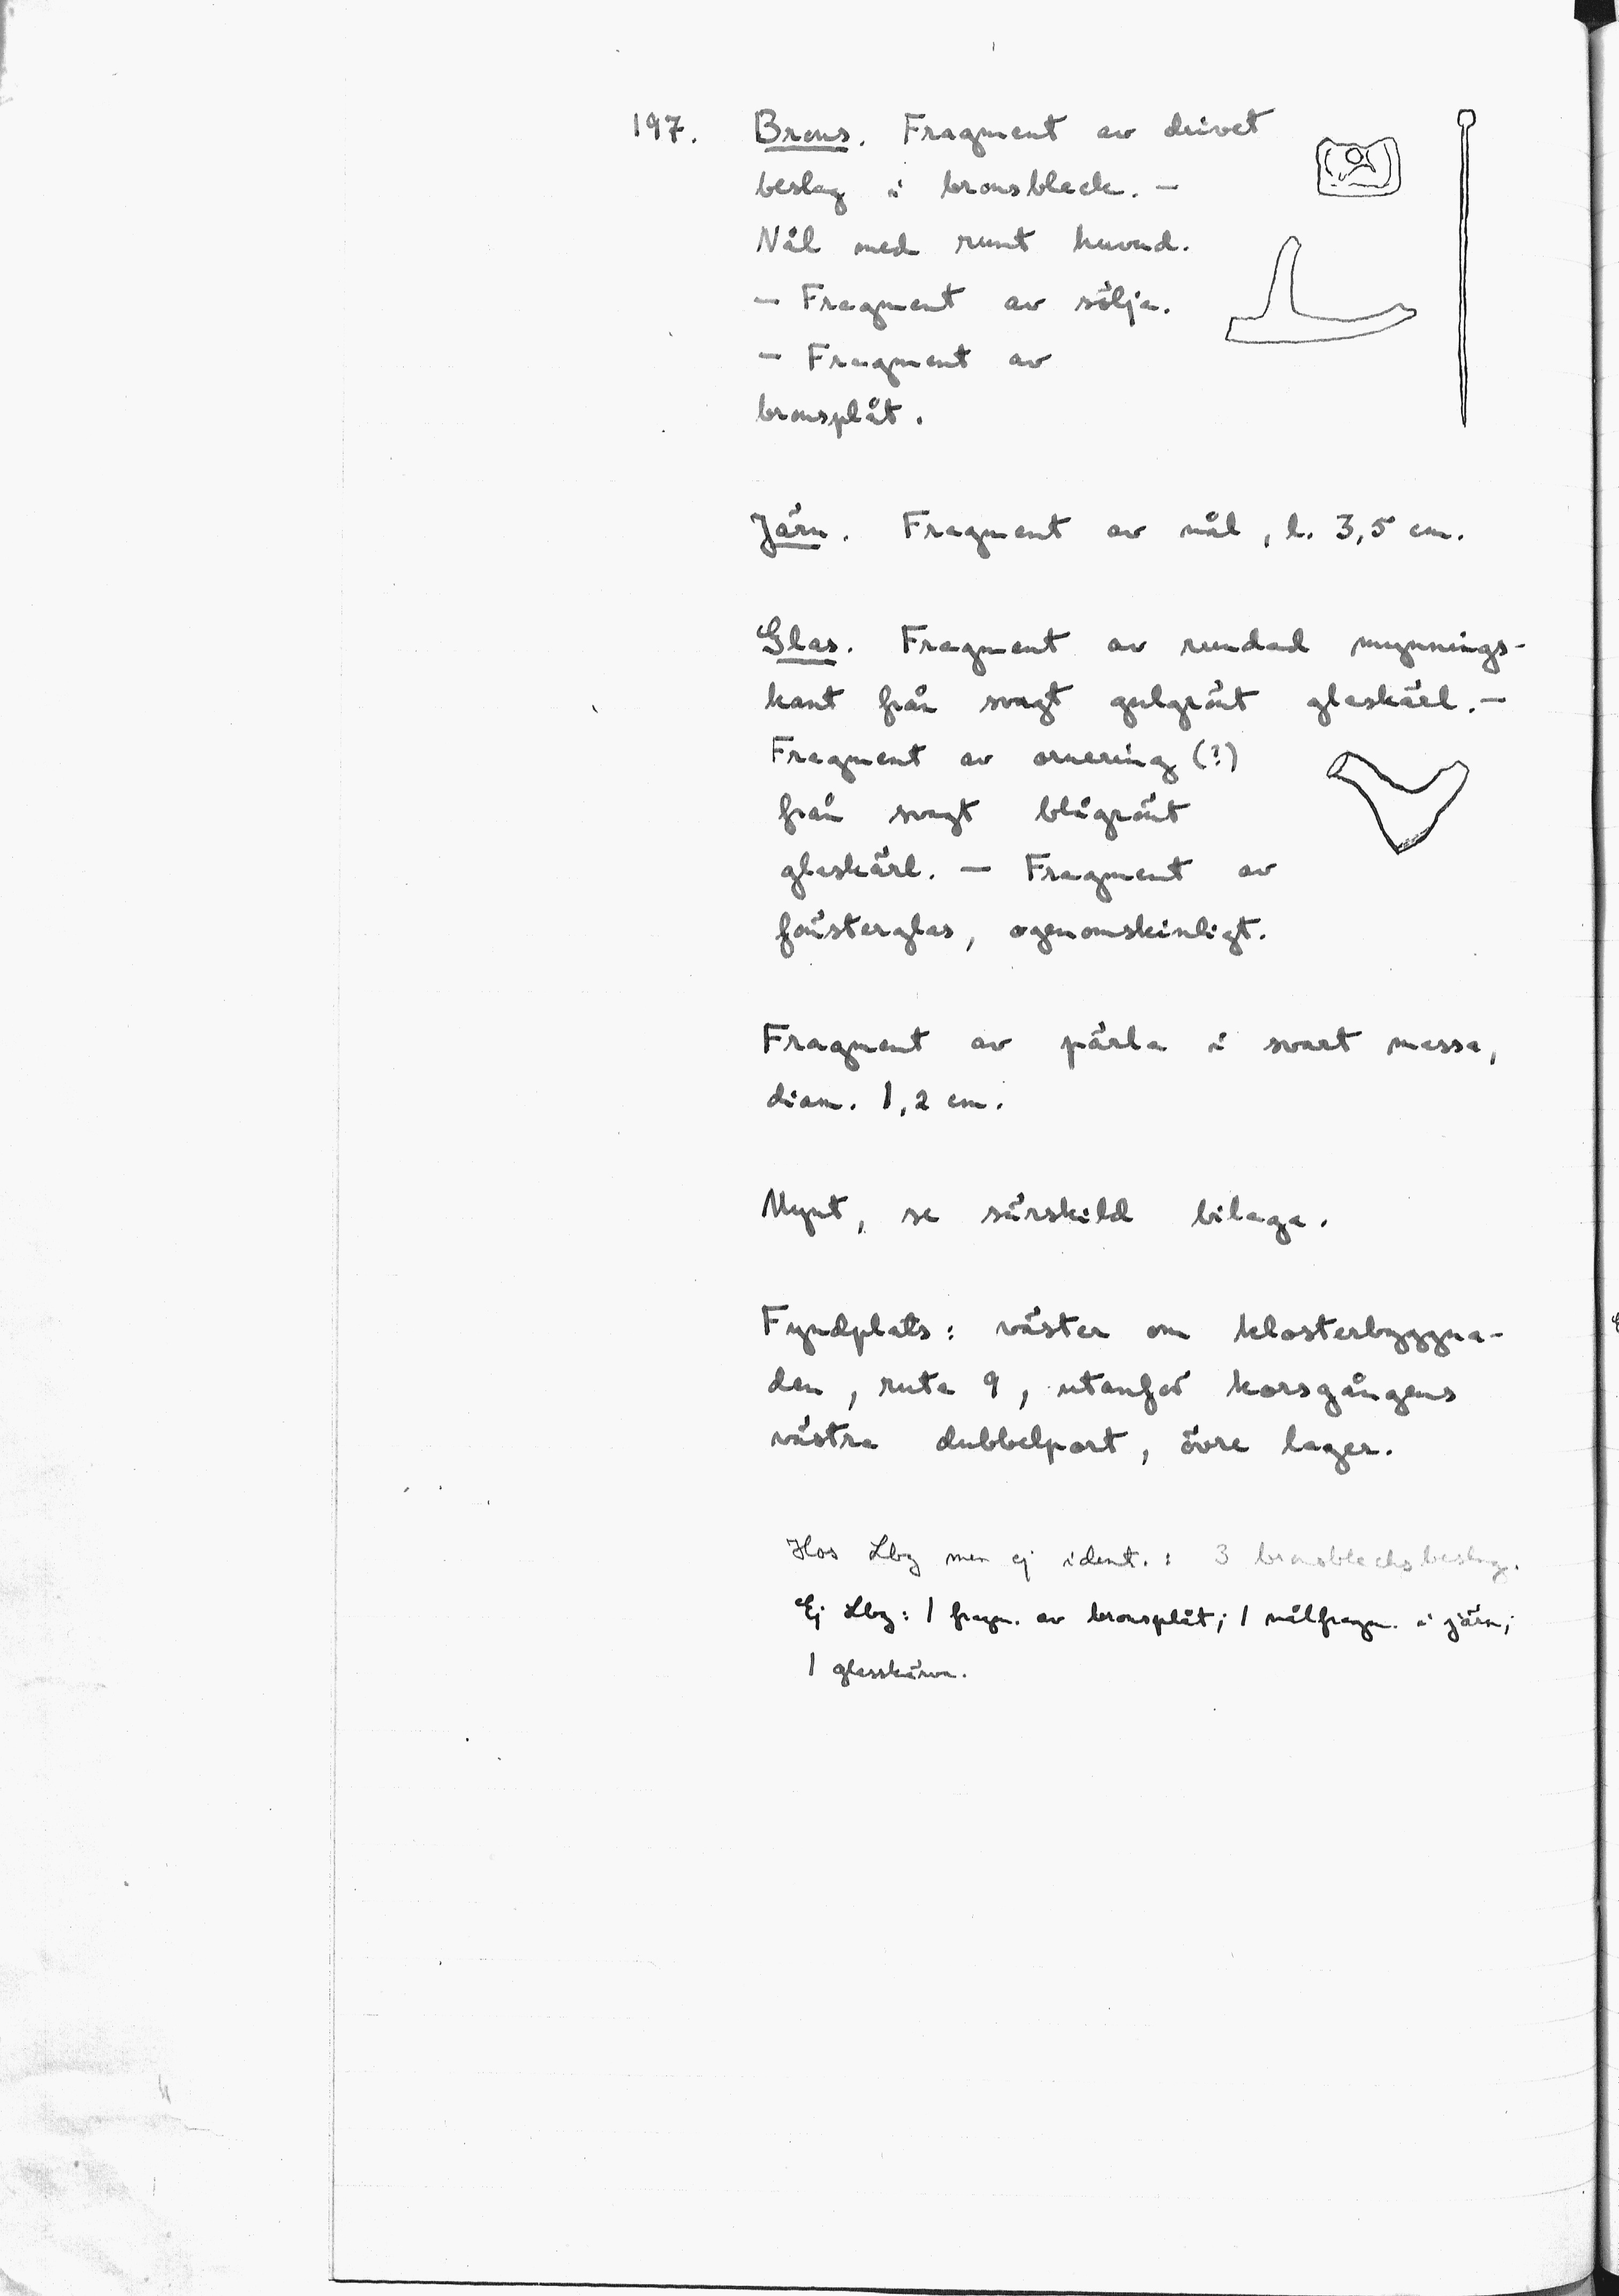 197. Brons. Fragment av drivet
beslag i bronsbleck. —
Nål med runt huvud.
— Fragment av sölja.
— Fragment av
bronsplåt.
Järn. Fragment av nål, l. 3,5 cm.
Glas. Fragment av rundad mynnings-
kant från svagt gulgrönt glaskärl. —
Fragment av ornering (?)
från svagt blågrönt
glaskärl. — Fragment av
fönsterglas, ogenomskinligt.
Fragment av pärla i svart massa,
diam. 1,2 cm.
Mynt, se särskild bilaga.
Fyndplats: väster om klosterbyggna-
den, ruta 9, utanför korsgångens
västra dubbelport, övre lager.
Hos Lbg men ej ident.: 3 bronsblecksbeslag.
Ej Lbg: 1 fragm. av bronsplåt; 1 nålfragm. i järn;
1 glasskärva.